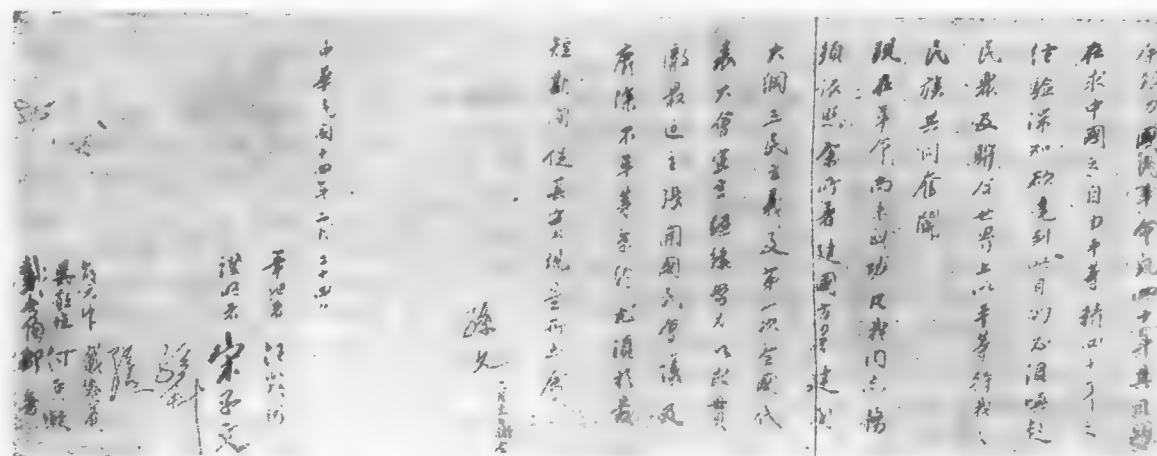 余致力國民革命凡四十年其目的
在求中國之自由平等積四十年之
經驗深知欲達到此目的必須喚起
民眾及聯合世界上以平等待我之
民族共同奮鬥
現在革命尚未成功凡我同志務
須依照余所著建國方略建國
大綱三民主義及第一次全國代
表大會宣言繼續努力以求貫
徹最近主張開國民會議及
廢除不平等條約尤須於最
短期間促其實現是所至囑
孫文 三月十一日補簽
中華民國十四年二月二十四日
筆記者 汪精衛
證明者 宋子文
孫科
邵元沖 戴恩賽
吳敬恆 何香凝
鄒魯